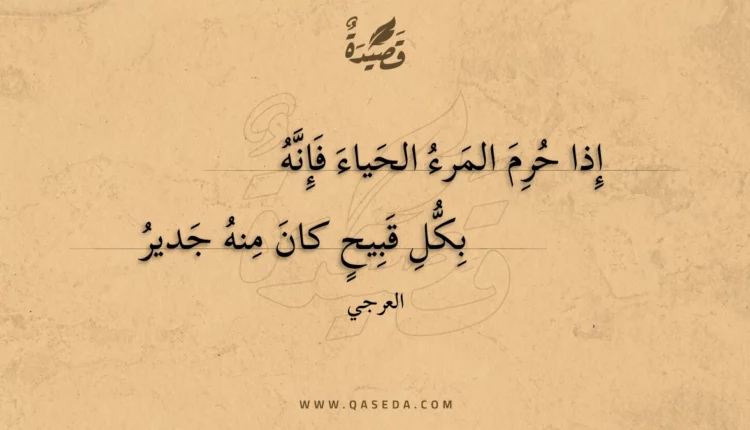 قَصِيدَةٌ
إِذا حُرِمَ المَرءُ الحَياءَ فَإِنَّهُ
بِكُلِّ قَبِيحٍ كانَ مِنهُ جَديرُ
العرجي
WWW.QASEDA.COM